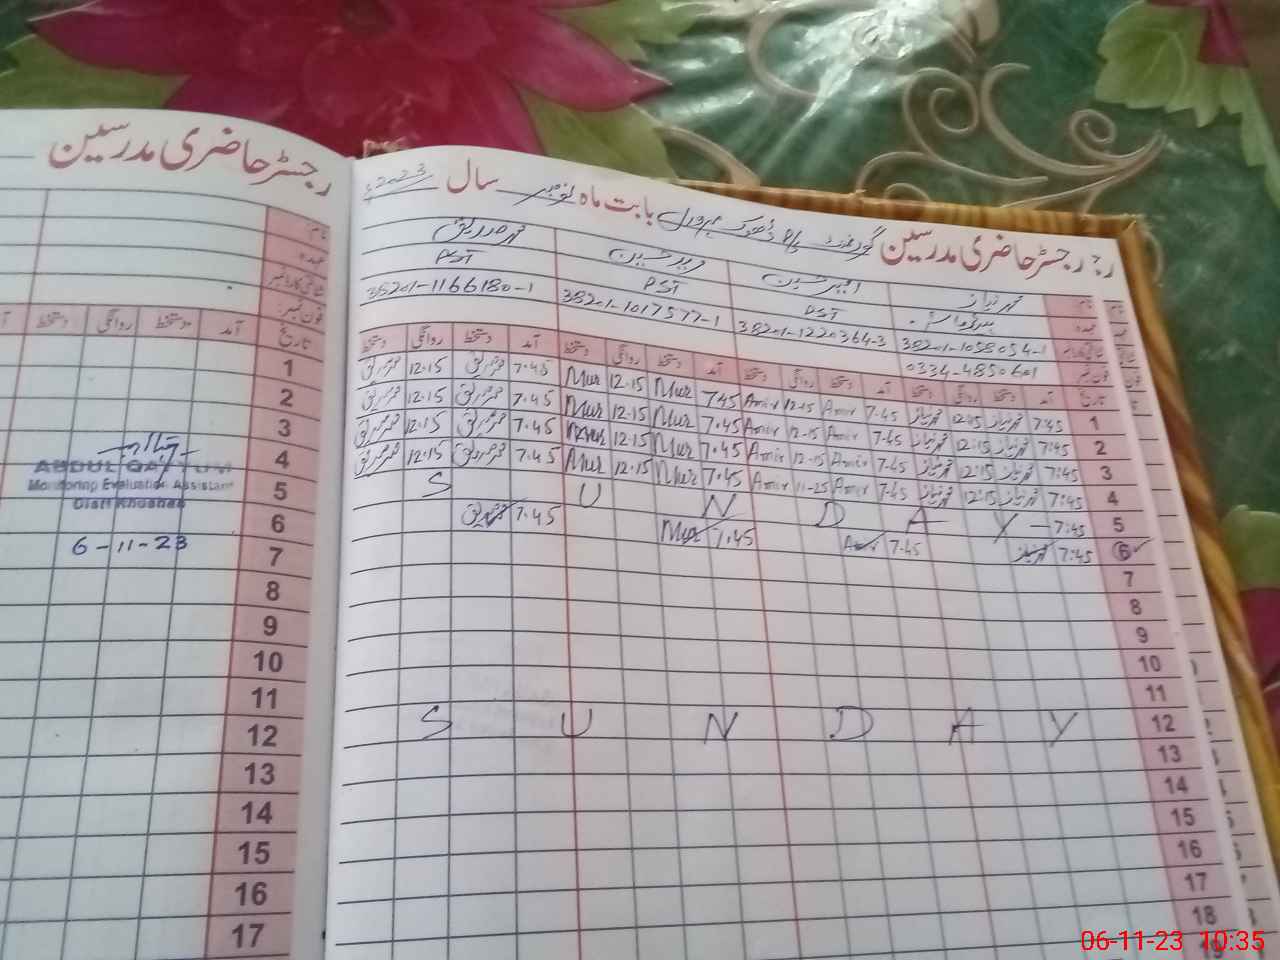 رجسٹر حاضری مدرسین
نام:
عہدہ
شناختی کارڈ نمبر
فون نمبر:
تاریخ آمد دستخط روانگی دستخط
1
2
3
4
5
6
7
8
9
10
11
12
13
14
15
16
17
ABDUL QAYYUM
Monitoring Evaluation Assistant
Distt Khushab
6-11-23
رجسٹر حاضری مدرسین گورنمنٹ P/S ڈھوک بابت ماہ نومبر سال 2023ء
نام محمد نیاز امبرین محمد صدیق
عہدہ PST PST PST
38201-1058054-1 38201-1220364-3 38201-1017577-1 38201-1166180-1
فون نمبر 0334-4850601
تاریخ آمد دستخط روانگی دستخط آمد دستخط روانگی دستخط آمد دستخط روانگی دستخط آمد دستخط روانگی دستخط
1 7:45 محمد نیاز 12:15 محمد نیاز 7-45 Amir 12-15 Amir 7.45 Mur 12.15 Mur 7.45 محمد صدیق 12.15 محمد صدیق
2 7:45 محمد نیاز 12:15 محمد نیاز 7-45 Amir 12-15 Amir 7.45 Mur 12.15 Mur 7.45 محمد صدیق 12.15 محمد صدیق
3 7:45 محمد نیاز 12:15 محمد نیاز 7-45 Amir 12-15 Amir 7.45 Mur 12.15 Mur 7.45 محمد صدیق 12.15 محمد صدیق
4 7:45 محمد نیاز 12:15 محمد نیاز 7-45 Amir 11-25 Amir 7.45 Mur 12.15 Mur 7.45 محمد صدیق 12.15 محمد صدیق
5 7:45 S U N D A Y
6 7:45 محمد نیاز 7-45 Amir 7.45 Mur 7.45 محمد صدیق
7
8
9
10
11
12 S U N D A Y
13
14
15
16
17
18
19
06-11-23 10:35